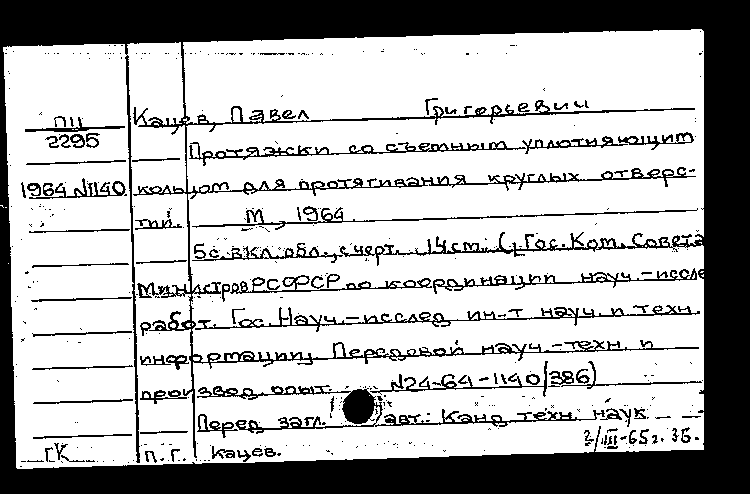 ПЦ Кацев, Павел Григорьевич
2295
Протяжки со съемным уплотняющим
1964 №1140 кольцом для протягивания круглых отверс-
тий. М., 1964.
5с. вкл. обл., с черт. 14 см. (Гос. Ком. Совета
Министров РСФСР по координации науч.-иссле
работ. Гос. Науч.-исслед ин-т науч. и техн.
информации. Передовой науч.-техн. и
производ. опыт. №24-64-1140/386)
Перед загл. авт.: Канд техн. наук
ГК П.Г. Кацев.
2/III-65г. ЗБ.